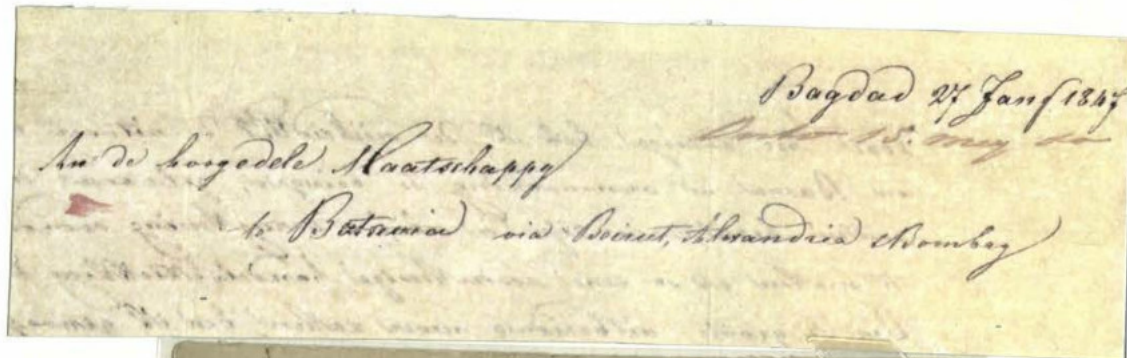 Bagdad 27 Jany 1847
15. mey
An de hoogedele Maatschappy
te Batavia via Beirut, Alexandria & Bombay